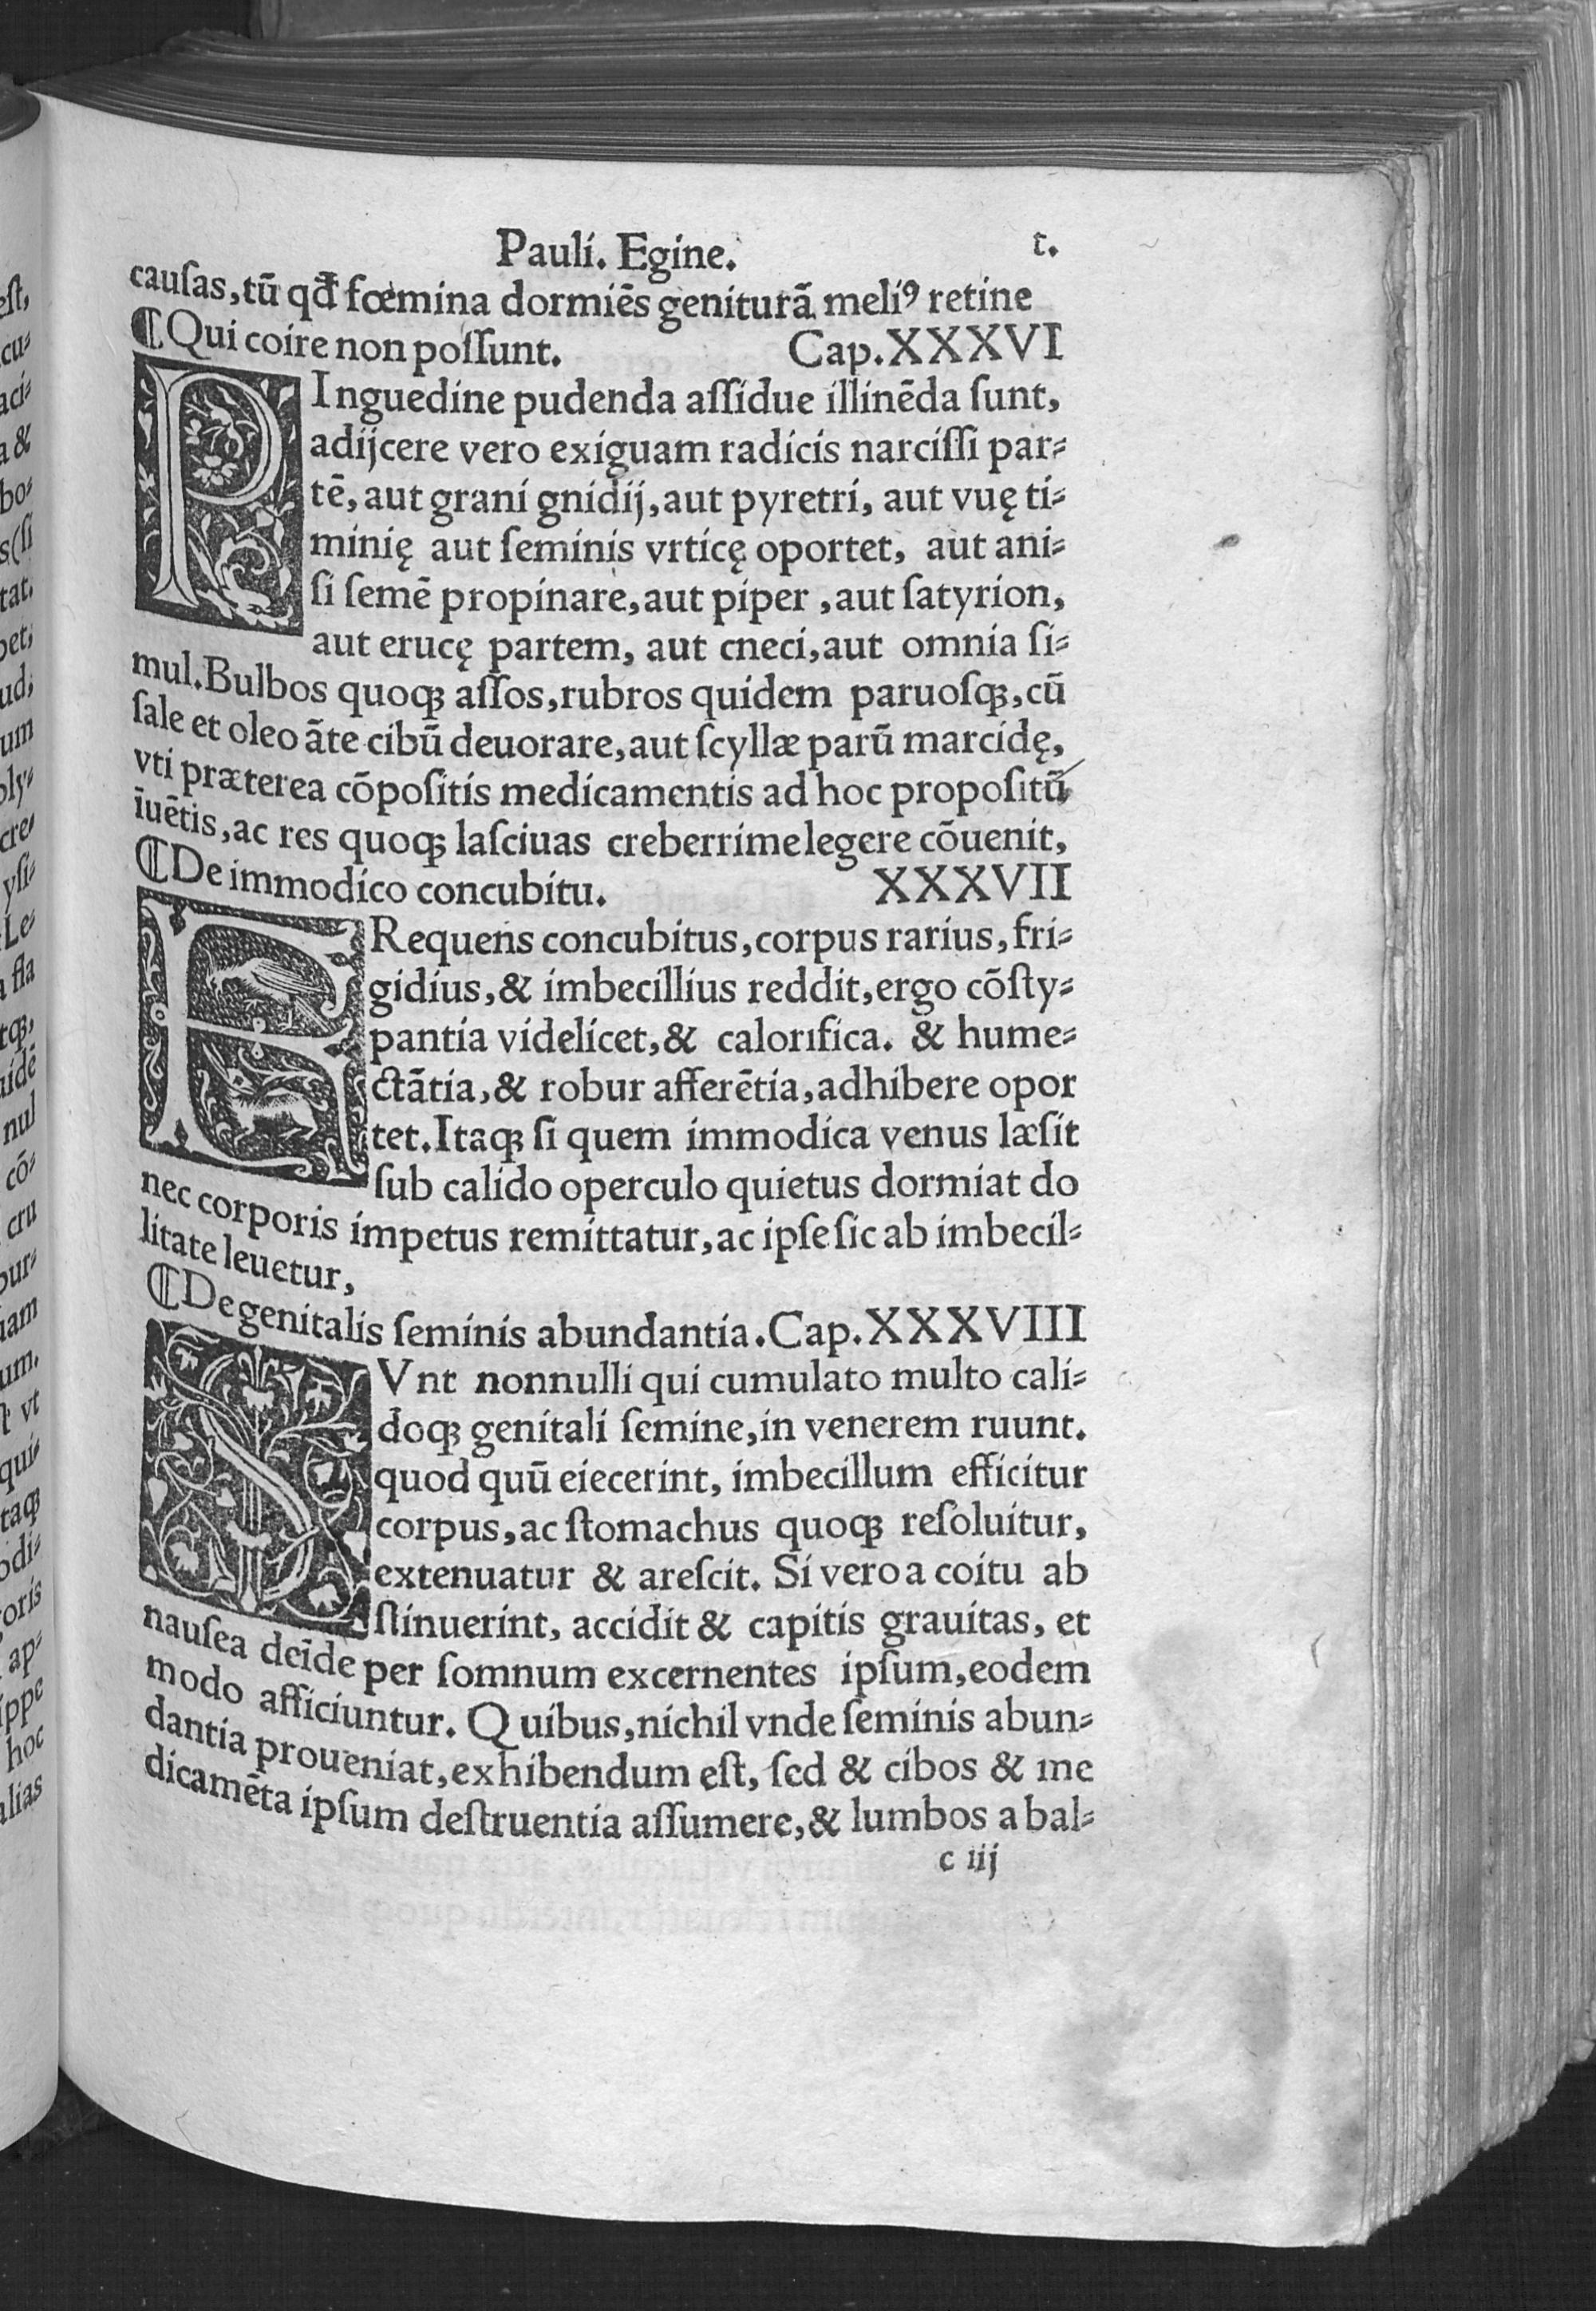 Pauli. Egine.
causas, tū qđ fœmina dormiēs geniturā meliꝰ retine
¶ Qui coire non possunt. Cap. XXXVI
PInguedine pudenda assidue illinēda sunt,
adijcere vero exiguam radicis narcissi par⸗
tē, aut grani gnidij, aut pyretri, aut vuę ti⸗
minię aut seminis vrticę oportet, aut ani⸗
si semē propinare, aut piper, aut satyrion,
aut erucę partem, aut cneci, aut omnia si⸗
mul. Bulbos quoqꝫ assos, rubros quidem paruosqꝫ, cū
sale et oleo āte cibū deuorare, aut scyllæ parū marcidę,
vti præterea cōpositis medicamentis ad hoc propositū
iuētis, ac res quoqꝫ lasciuas creberrime legere cōuenit,
¶ De immodico concubitu. XXXVII
FRequens concubitus, corpus rarius, fri⸗
gidius, & imbecillius reddit, ergo cōsty⸗
pantia videlicet, & calorifica. & hume⸗
ctātia, & robur afferētia, adhibere opor
tet. Itaqꝫ si quem immodica venus læsit
sub calido operculo quietus dormiat do
nec corporis impetus remittatur, ac ipse sic ab imbecil⸗
litate leuetur,
¶ De genitalis seminis abundantia. Cap. XXXVIII
SVnt nonnulli qui cumulato multo cali⸗
doqꝫ genitali semine, in venerem ruunt.
quod quū eiecerint, imbecillum efficitur
corpus, ac stomachus quoqꝫ resoluitur,
extenuatur & arescit. Si vero a coitu ab
stinuerint, accidit & capitis grauitas, et
nausea deīde per somnum excernentes ipsum, eodem
modo afficiuntur. Quibus, nichil vnde seminis abun⸗
dantia proueniat, exhibendum est, sed & cibos & me
dicamēta ipsum destruentia assumere, & lumbos a bal⸗
c iij